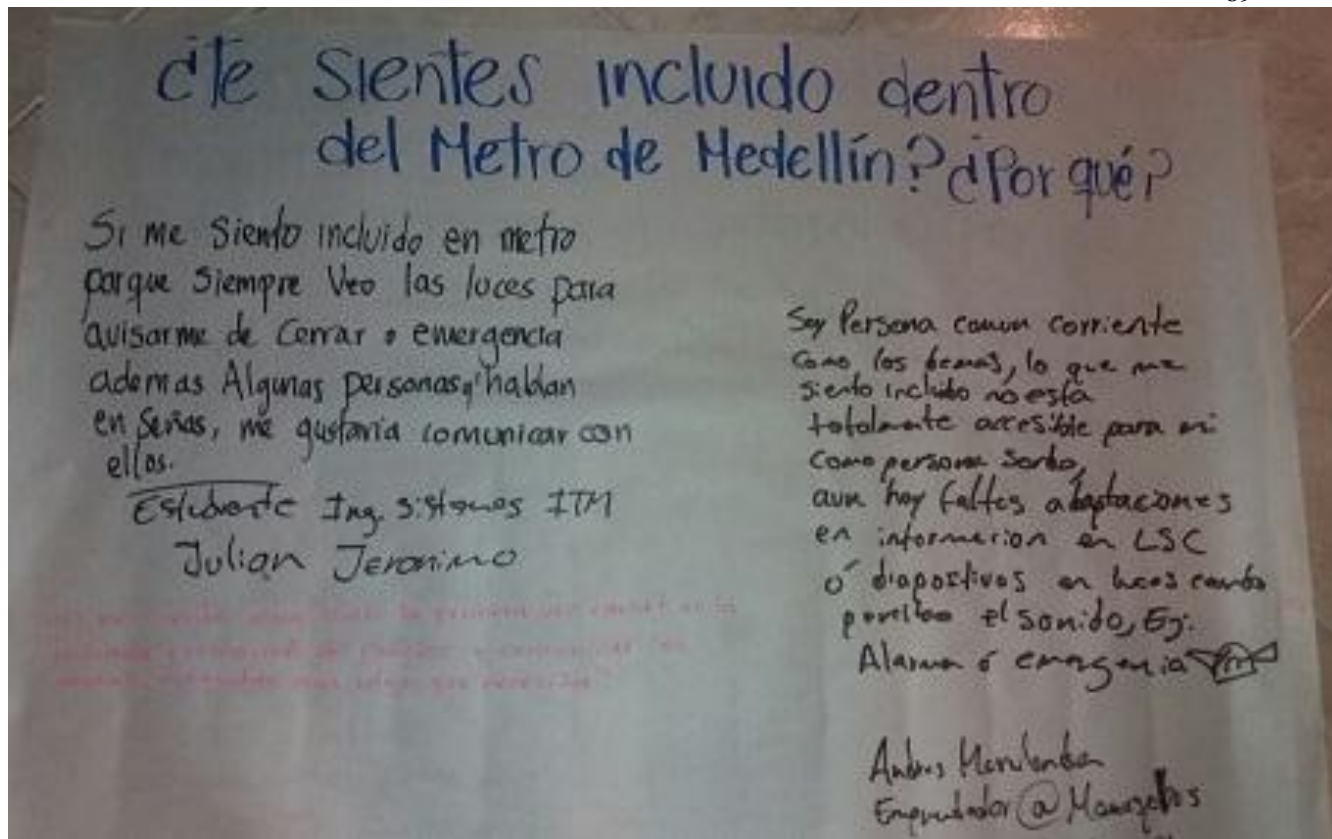 ¿Te Sientes incluido dentro
del Metro de Medellín? ¿Por qué?
Si me Siento incluido en metro
porque Siempre Veo las luces para
avisarme de Cerrar o emergencia
ademas Algunas personas q' hablan
en Señas, me gustaria comunicar con
ellos.
Estudiante Ing. Sistemas ITM
Julian Jeronimo
Soy Persona comun corriente
como los demas, lo que me
siento incluido no esta
totalmente accesible para mi
como persona Sorda,
aun hay faltas adaptaciones
en informacion en LSC
ó diapositivos en luces cuando
el sonido, Ej:
Alarma ó emergencia
Andres Marulanda